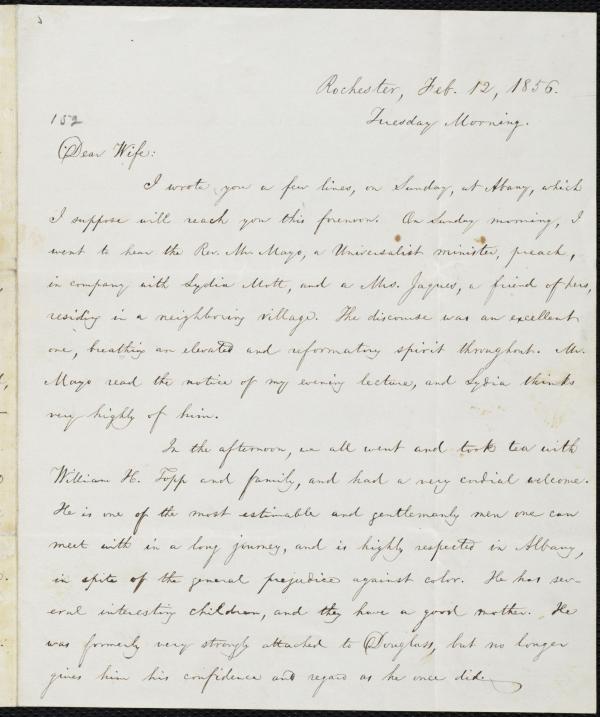 Rochester, Feb. 12, 1856.
Tuesday Morning.
152
Dear Wife:
I wrote you a few lines, on Sunday, at Abany, which
I suppose will reach you this forenoon. On Sunday morning, I
went to hear the Rev. Mr. Mayo, a Universalist minister, preach,
in company with Lydia Mott, and a Mrs. Jaques, a friend of hers,
residing in a neighboring village. The discourse was an excellent
one, breathing an elevated and reformatory spirit throughout. Mr.
Mayo read the notice of my evening lecture, and Lydia thinks
very highly of him.
In the afternoon, we all went and took tea with
William H. Topp and family, and had a very cordial welcome.
He is one of the most estimable and gentlemanly men one can
meet with in a long journey, and is highly respected in Albany,
in spite of the general prejudice against color. He has sev-
eral interesting children, and they have a good mother. He
was formerly very strongly attached to Douglass, but no longer
gives him his confidence and regard as he once did.